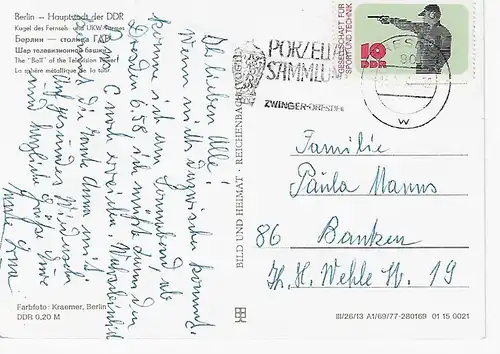 Berlin — Hauptstadt der DDR
Kugel des Fernseh- und UKW-Turmes
Берлин — столица ГДР
Шар телевизионной башни
The "Ball" of the Television Tower
La sphère métallique de la tour
Ihr lieben Alle!
Wenn nichts dazwischen kommt,
komme ich am Sonnabend ab
Dresden 6.58 ich müßte dann den
noch erreichen. Wahrscheinlich
Auf gesundes Wiedersehen
und herzliche Grüße Eure
Farbfoto: Kraemer, Berlin
DDR 0,20 M
BILD UND HEIMAT · REICHENBACH (VOGTL)
PORZELLAN
SAMMLUNG
ZWINGER-DRESDEN
GESELLSCHAFT FÜR
SPORT UND TECHNIK
10
DDR
W
Familie
Paula Manns
86 Bautzen
Th. H. Wehle Str. 19
III/26/13 A1/69/77-280169 01 15 0021